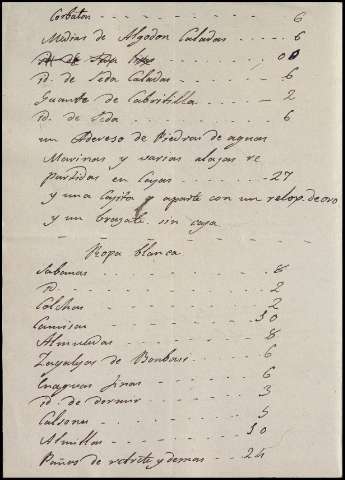 Corbatas - - - - - - 6
Medias de Algodon Caladas - - - 6
id. de - - - - 00
id. de Seda Caladas - - - - 6
Guante de Cabritilla - - - - 2
id. de Seda - - - - - - 6
un Adereso de Piedras de aguas
Marinas y varias alajas re
partidas en Cajas - - - - - 27
y una Cajita y aparte con un relox de oro
y un brazale sin caja
Ropa blanca
Sabanas - - - - - - 8
id. - - - - - - - 2
Colchas - - - - - - 2
Camisas - - - - - - 30
Almuadas - - - - - - 8
Zagalejos de Bonbasi - - - - 6
Enaguas finas - - - - - 6
id. de dormir - - - - - 3
Calsones - - - - - - 5
Almillas - - - - - - 30
Paños de retrete y demas - - - 24